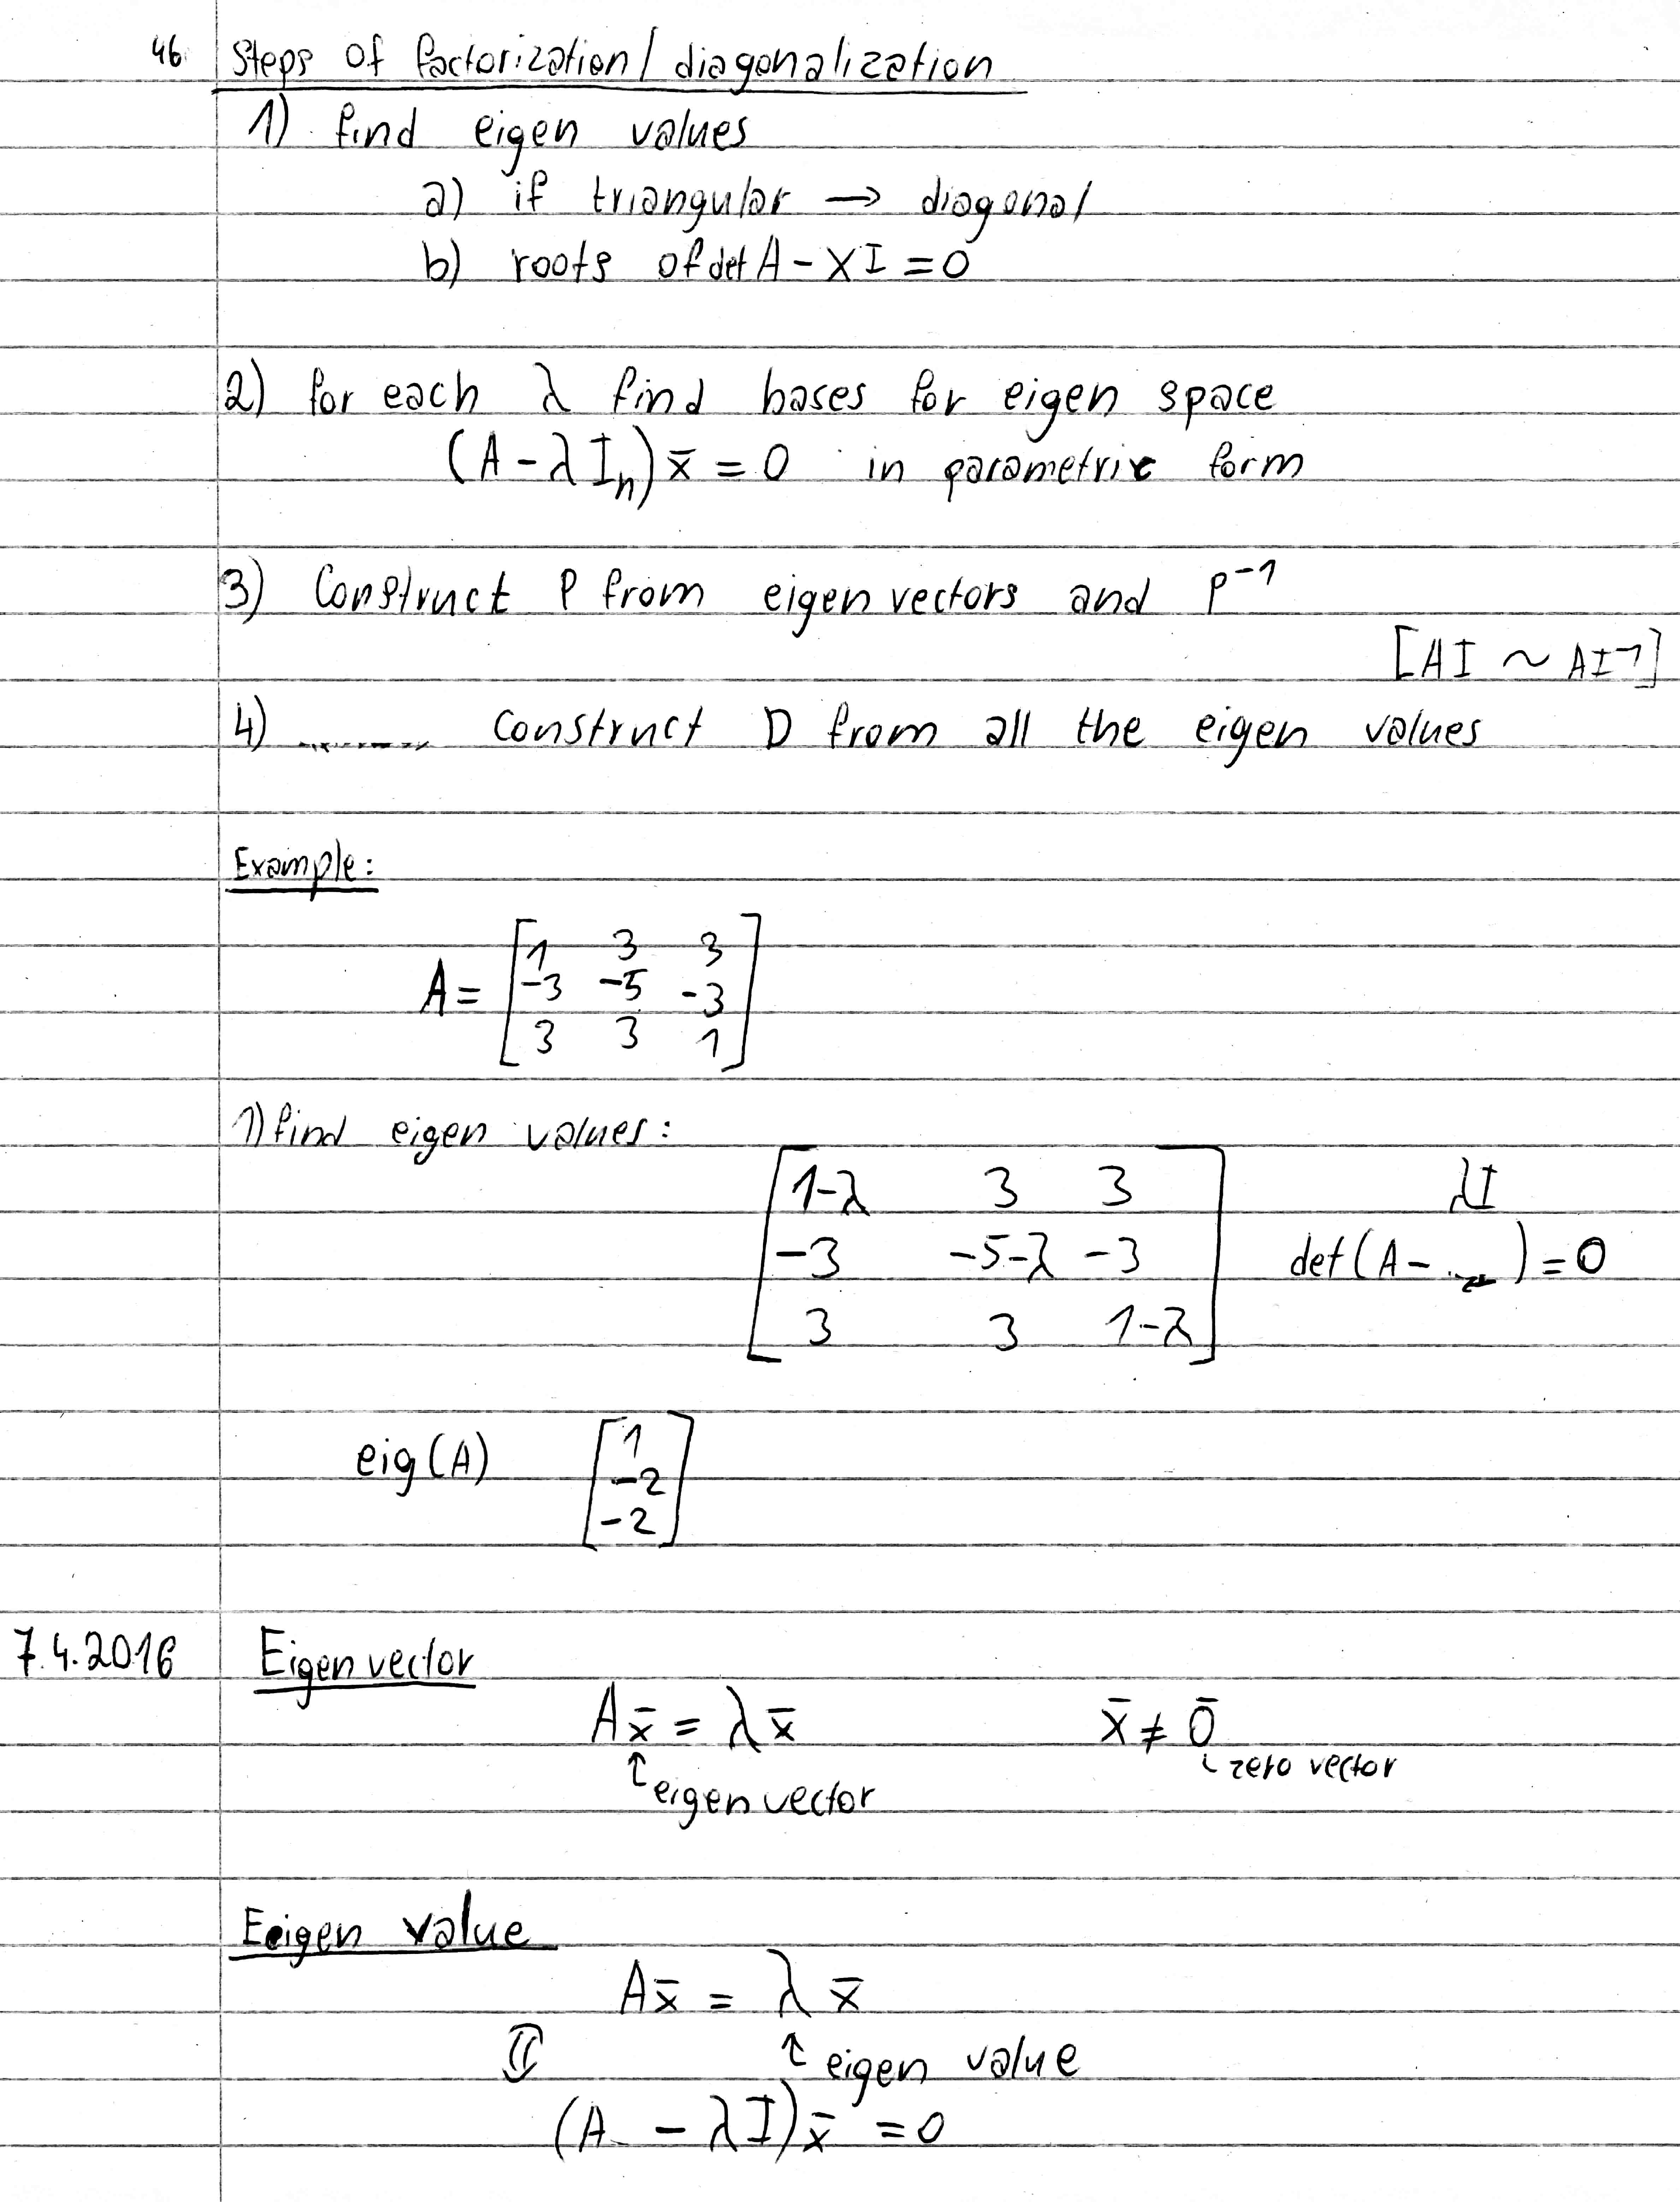 46. Steps of factorization/diagonalization
1) find eigen values
a) if triangular → diagonal
b) roots of det A - XI = 0
2) for each λ find bases for eigen space
(A - λIₙ)x̄ = 0 in parametric form
3) Construct P from eigenvectors and P⁻¹
[AI ~ AI⁻¹]
4) ......... Construct D from all the eigen values
Example:
A = [1 3 3
-3 -5 -3
3 3 1]
1) find eigen values:
[1-λ 3 3
-3 -5-λ -3
3 3 1-λ]
λI
det(A - ...) = 0
eig(A) [1
-2
-2]
7.4.2016 Eigenvector
Ax̄ = λx̄ x̄ ≠ 0̄
↑ eigenvector zero vector
Eeigen value
Ax̄ = λx̄
⇕ ↑ eigen value
(A - λI)x̄ = 0